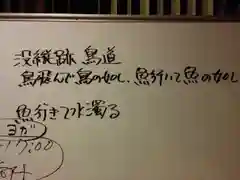 没蹤跡 鳥道
鳥飛んで鳥の如し、魚行いて魚の如し
魚行きて水濁る
ヨガ
17:00